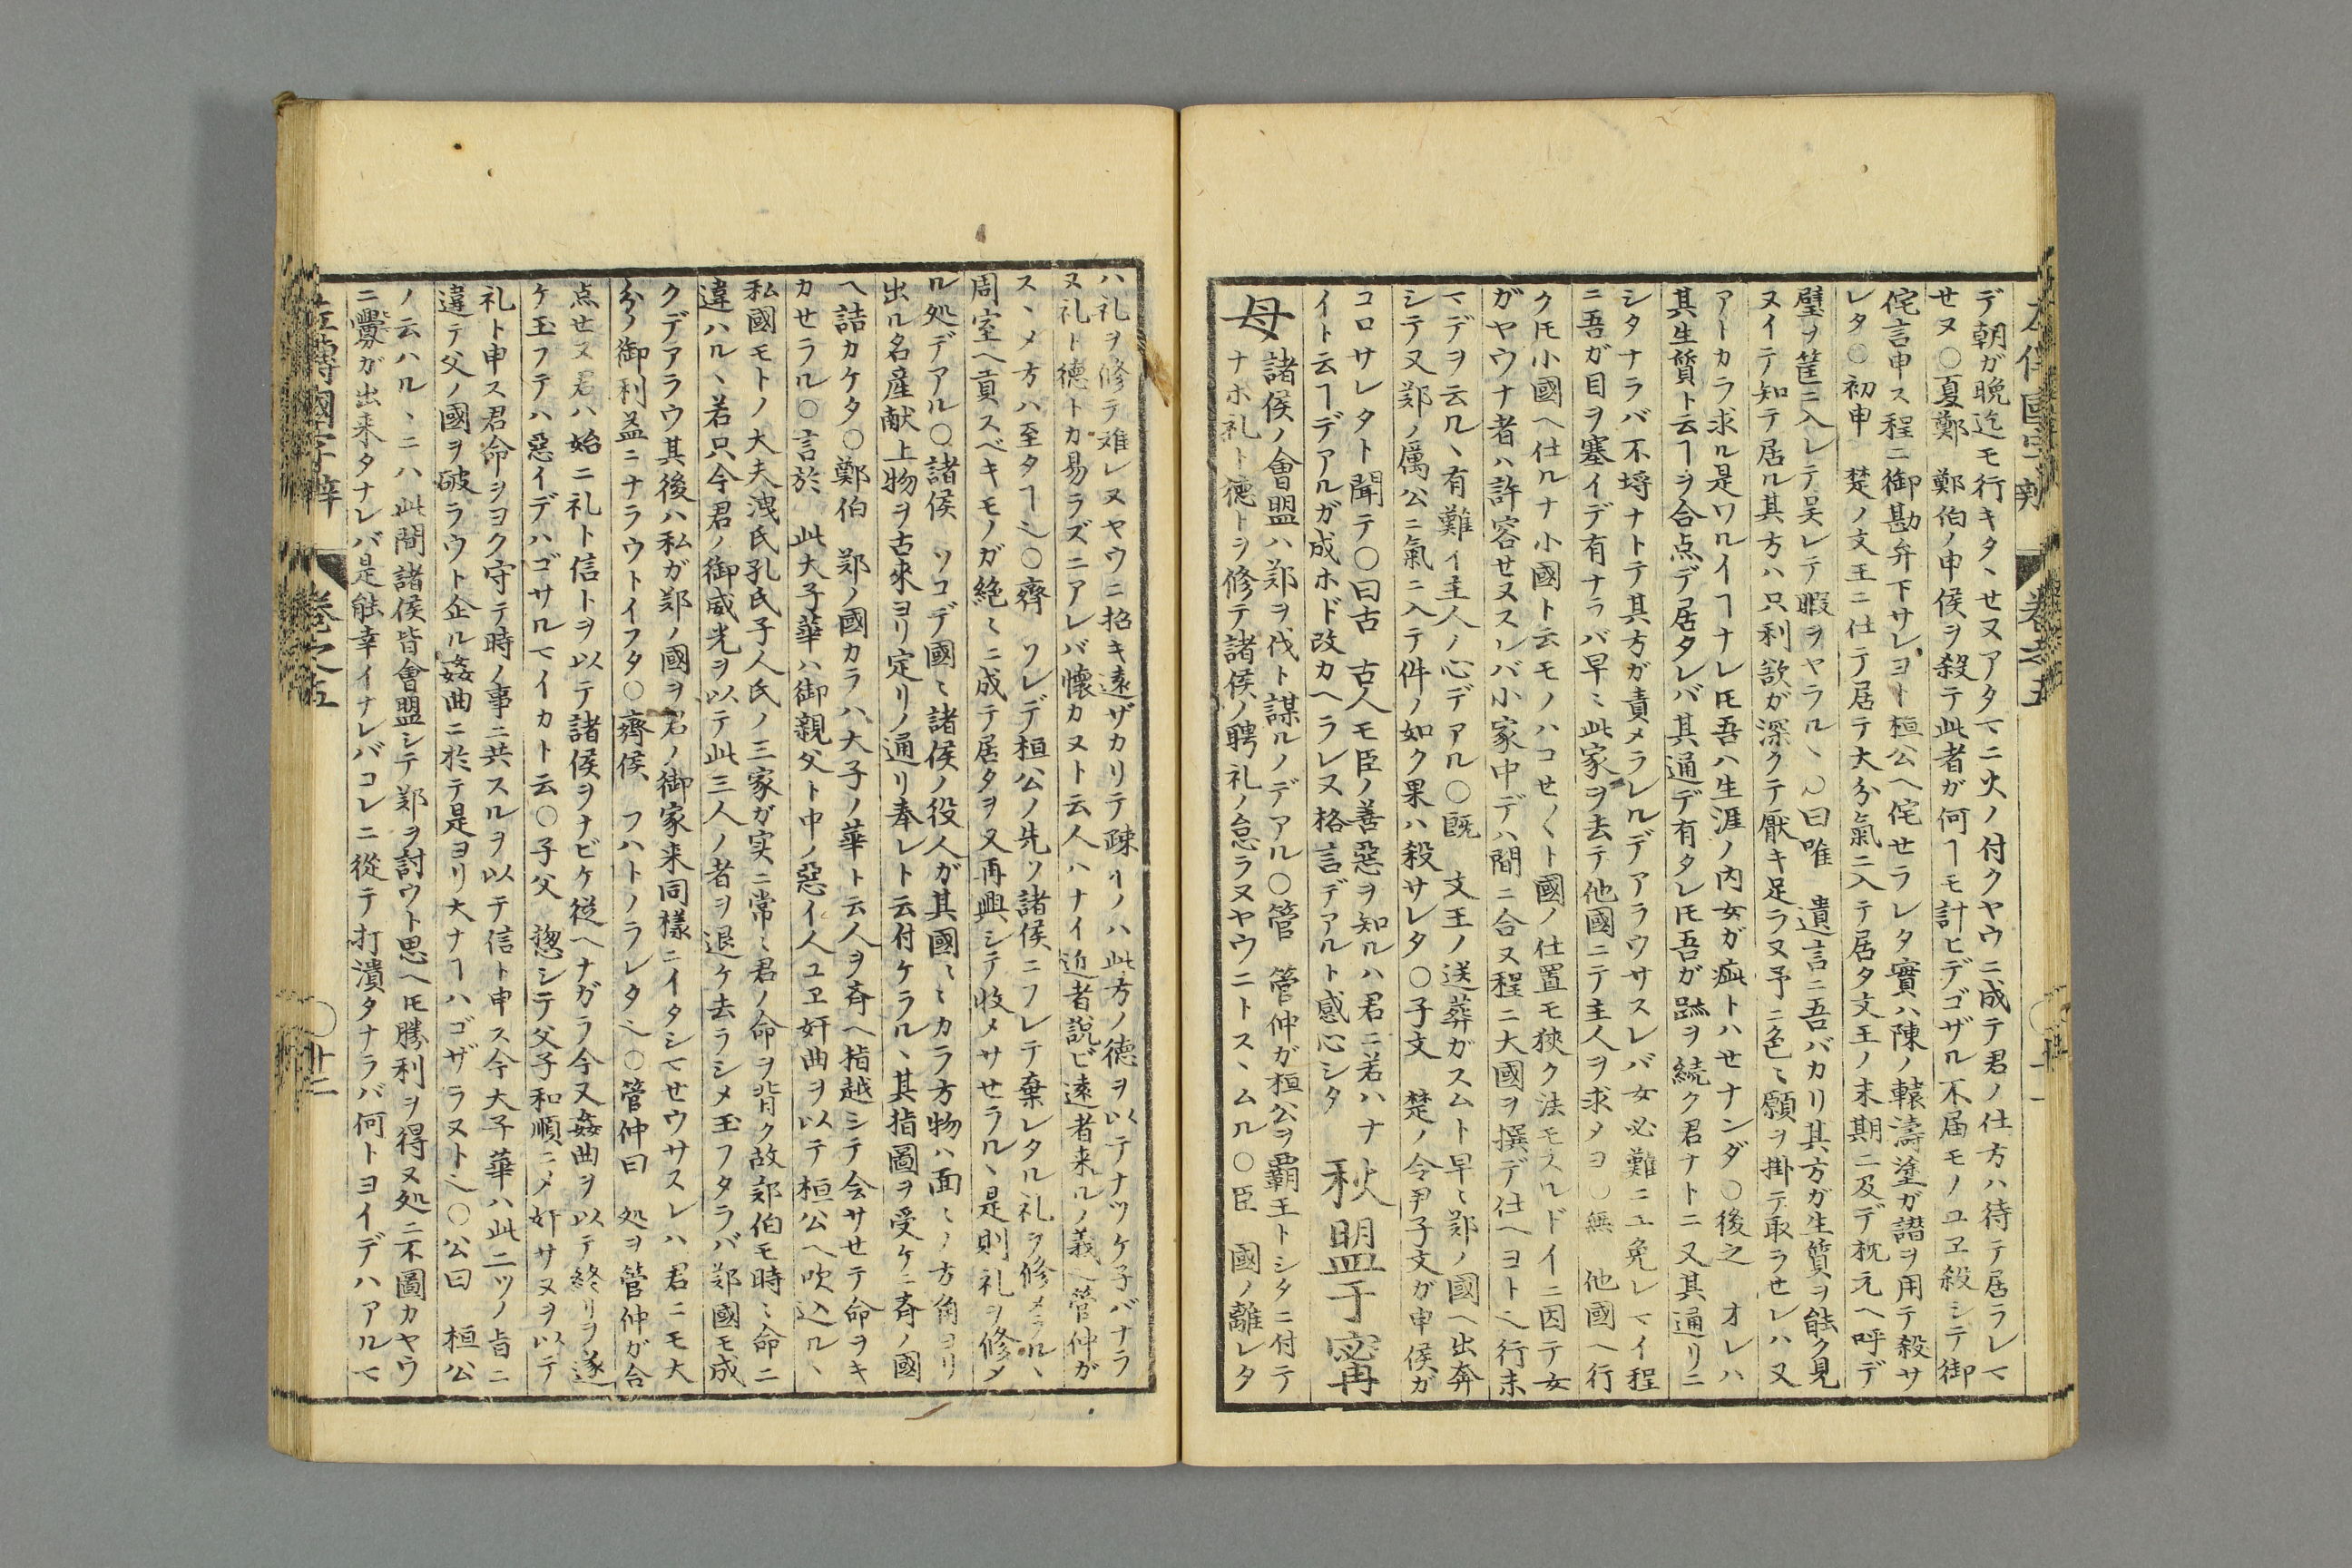 デ朝ガ晩迄モ行キタヽセヌアタマニ火ノ付クヤウニ成テ君ノ仕方ハ待テ居ラレマ
セヌ○夏鄭　鄭伯ノ申侯ヲ殺テ此者ガ何ヿモ計ヒデゴザル不届モノユヱ殺シテ御
侘言申ス程ニ御勘弁下サレヨト桓公ヘ侘セラレタ實ハ陳ノ轅濤塗ガ譖ヲ用テ殺サ
レタ○初申　楚ノ文王ニ仕テ居テ大分氣ニ入テ居タ文王ノ末期ニ及デ枕元ヘ呼デ
璧ヲ筐ニ入レテ呉レテ暇ヲヤラルヽ○曰唯　遺言ニ吾バカリ其方ガ生質ヲ能ク見
ヌイテ知テ居ル其方ハ只利欲ガ深クテ厭キ足ラヌ予ニ色〻願ヲ掛テ取ラセレハ又
アトカラ求ル是ワルイヿナレ𪜈吾ハ生涯ノ内女ガ疵トハセナンダ○後之　オレハ
其生質ト云ヿヲ合点デ居タレバ其通デ有タレ𪜈吾ガ跡ヲ続ク君ナトニ又其通リニ
シタナラバ不埒ナトテ其方ガ責メラレルデアラウサスレバ女必難ニエ免レマイ程
ニ吾ガ目ヲ塞イデ有ナラバ早〻此家ヲ去テ他國ニテ主人ヲ求メヨ○無　他國ヘ行
ク𪜈小國ヘ仕ルナ小國ト云モノハコセ〱ト國ノ仕置モ狹ク法モスルドイニ因テ女
ガヤウナ者ハ許容セヌスレバ小家中デハ間ニ合ヌ程ニ大國ヲ撰デ仕ヘヨト也行末
マデヲ云ルヽ有難イ主人ノ心デアル○既　文王ノ送葬ガスムト早〻郑ノ國ヘ出奔
シテ又郑ノ厲公ニ氣ニ入テ件ノ如ク果ハ殺サレタ○子文　楚ノ令尹子文ガ申侯ガ
コロサレタト聞テ○曰古　古人モ臣ノ善惡ヲ知ルハ君ニ若ハナ
イト云ヿデアルガ成ホド改カヘラレヌ格言デアルト感心シタ　秋盟于甯
母　諸侯ノ會盟ハ郑ヲ伐ト謀ルノデアル○管　管仲ガ桓公ヲ覇王トシタニ付テ
ナホ礼ト德トヲ修テ諸侯ノ聘礼ノ怠ラヌヤウニトスヽムル○臣　國ノ離レタ
ハ礼ヲ修テ难レヌヤウニ招キ遠ザカリテ疎イノハ此方ノ德ヲ以テナツケ子バナラ
ヌ礼ト德トカ易ラズニアレバ懷カヌト云人ハナイ近者説ビ遠者来ルノ義也管仲ガ
スヽメ方ハ至タヿ也○齊　ソレデ桓公ノ先ソ諸侯ニフレテ棄レタル礼ヲ修メラルヽ
周室ヘ貢スベキモノガ絶〻ニ成テ居タヲ又再興シテ收メサセラルヽ是則礼ヲ修メ
ル処デアル○諸侯　ソコデ國〻諸侯ノ役人ガ其國〻カラ方物ハ面〻ノ方角ヨリ
出ル名産献上物ヲ古來ヨリ定リノ通リ奉レト云付ケラルヽ其指圖ヲ受ケニ斉ノ國
ヘ詰カケタ○鄭伯　郑ノ國カラハ大子ノ華ト云人ヲ斉ヘ指越シテ会サセテ命ヲキ
カセラル○言於　此大子華ハ御親父ト中ノ惡イ人ユヱ奸曲ヲ以テ桓公ヘ吹込ルヽ
私國モトノ大夫洩氏孔氏子人氏ノ三家ガ実ニ常〻君ノ命ヲ背ク故郊伯モ時〻命ニ
違ハルヽ若只今君ノ御威光ヲ以テ此三人ノ者ヲ退ケ去ラシメ玉フタラバ郑國モ成
クデアラウ其後ハ私ガ郑ノ國ヲ君ノ御家来同様ニイタシマセウサスレハ君ニモ大
分ノ御利益ニナラウトイフタ○齊侯　フハトノラレタ也○管仲曰　処ヲ管仲ガ合
点セヌ君ハ始ニ礼ト信トヲ以テ諸侯ヲナビケ從ヘナガラ今又姦曲ヲ以テ終リヲ遂
ケ玉フテハ惡イデハゴサルマイカト云○子父　惣シテ父子和順ニメ奸サヌヲ以テ
礼ト申ス君命ヲヨク守テ時ノ事ニ共スルヲ以テ信ト申ス今大子華ハ此二ツノ旨ニ
違テ父ノ國ヲ破ラウト企ル姦曲ニ於テ是ヨリ大ナヿハゴザラヌト也○公曰　桓公
ノ云ハルヽニハ此間諸侯皆會盟シテ郑ヲ討ウト思ヘ𪜈勝利ヲ得ヌ処ニ不圖カヤウ
ニ釁ガ出来タナレバ是能幸イナレバコレニ從テ打潰タナラバ何トヨイデハアルマ
左傳國字辯　卷之五　○廿二